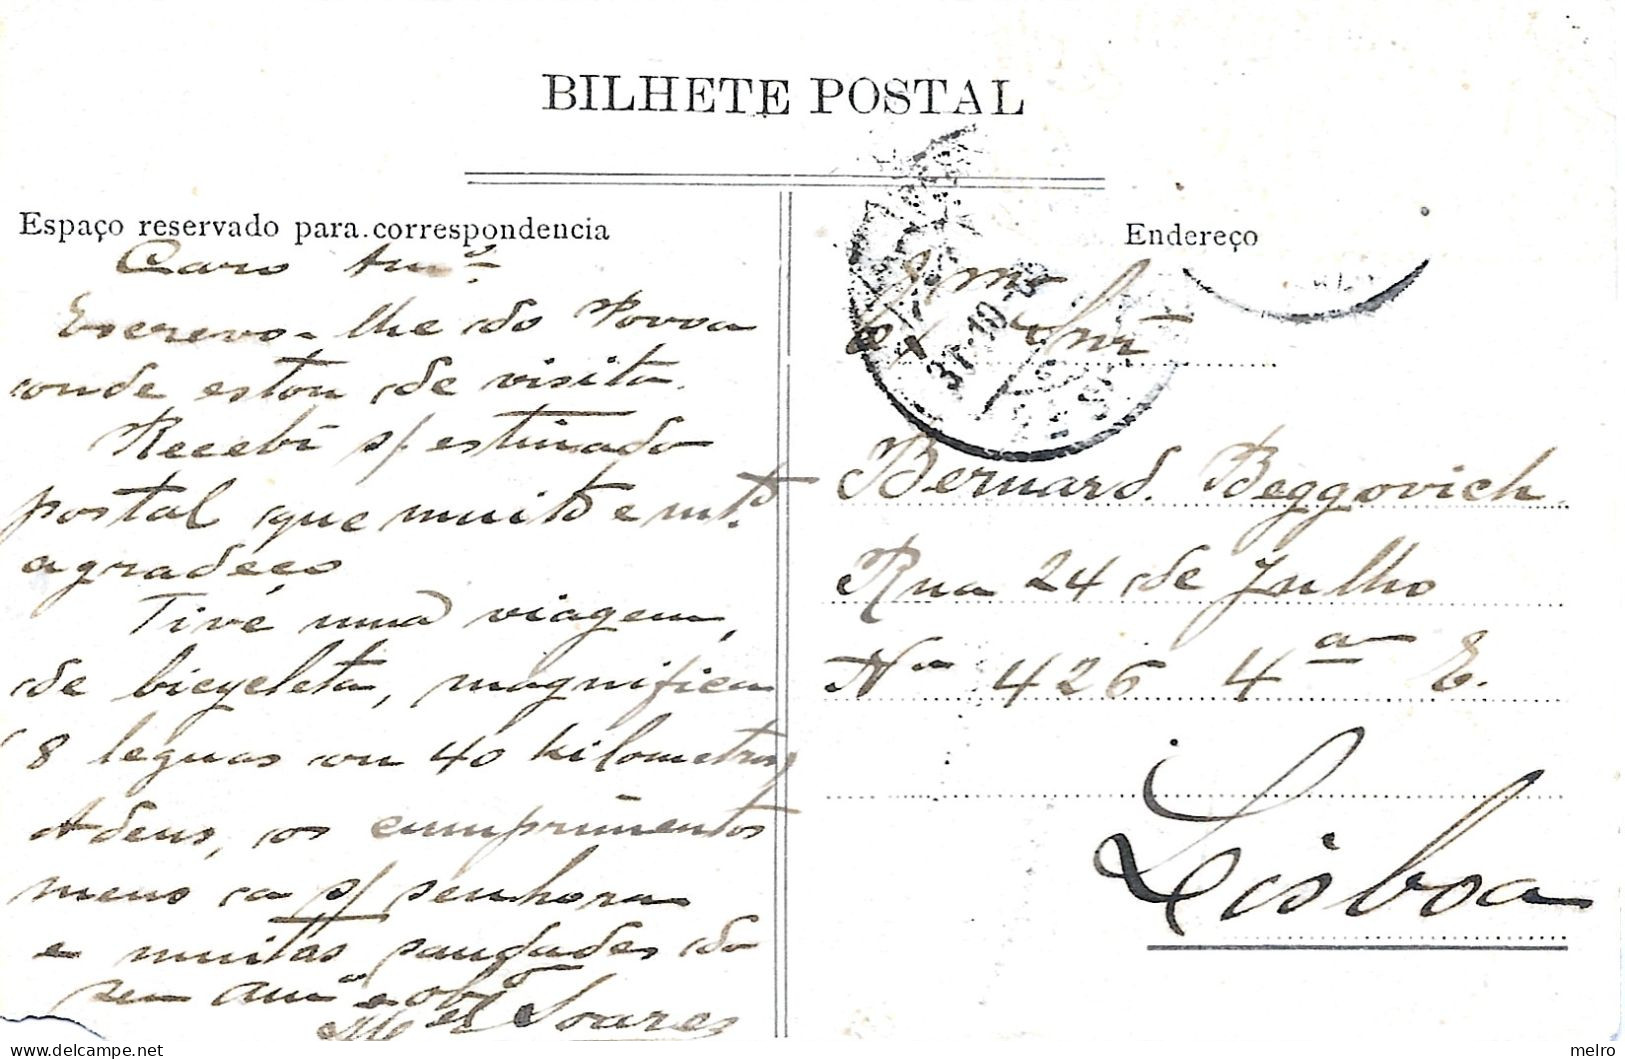 BILHETE POSTAL
Espaço reservado para correspondencia
Caro Amº.
Escrevo-lhe da Povoa
onde estou de visita.
Recebi s/ estimado
postal que muito e mtº.
agradeço
Tive uma viagem,
de bicycleta, magnifica
(8 leguas ou 40 kilometros)
Adeus, os cumprimentos
meus a s/ senhora
e muitas saudades do
seu amº e obgº
Mel Soares
Endereço
Exmo Snr
31-10
Bernard. Beggovich
Rua 24 de Julho
Nº 426 4º E.
Lisboa
melro